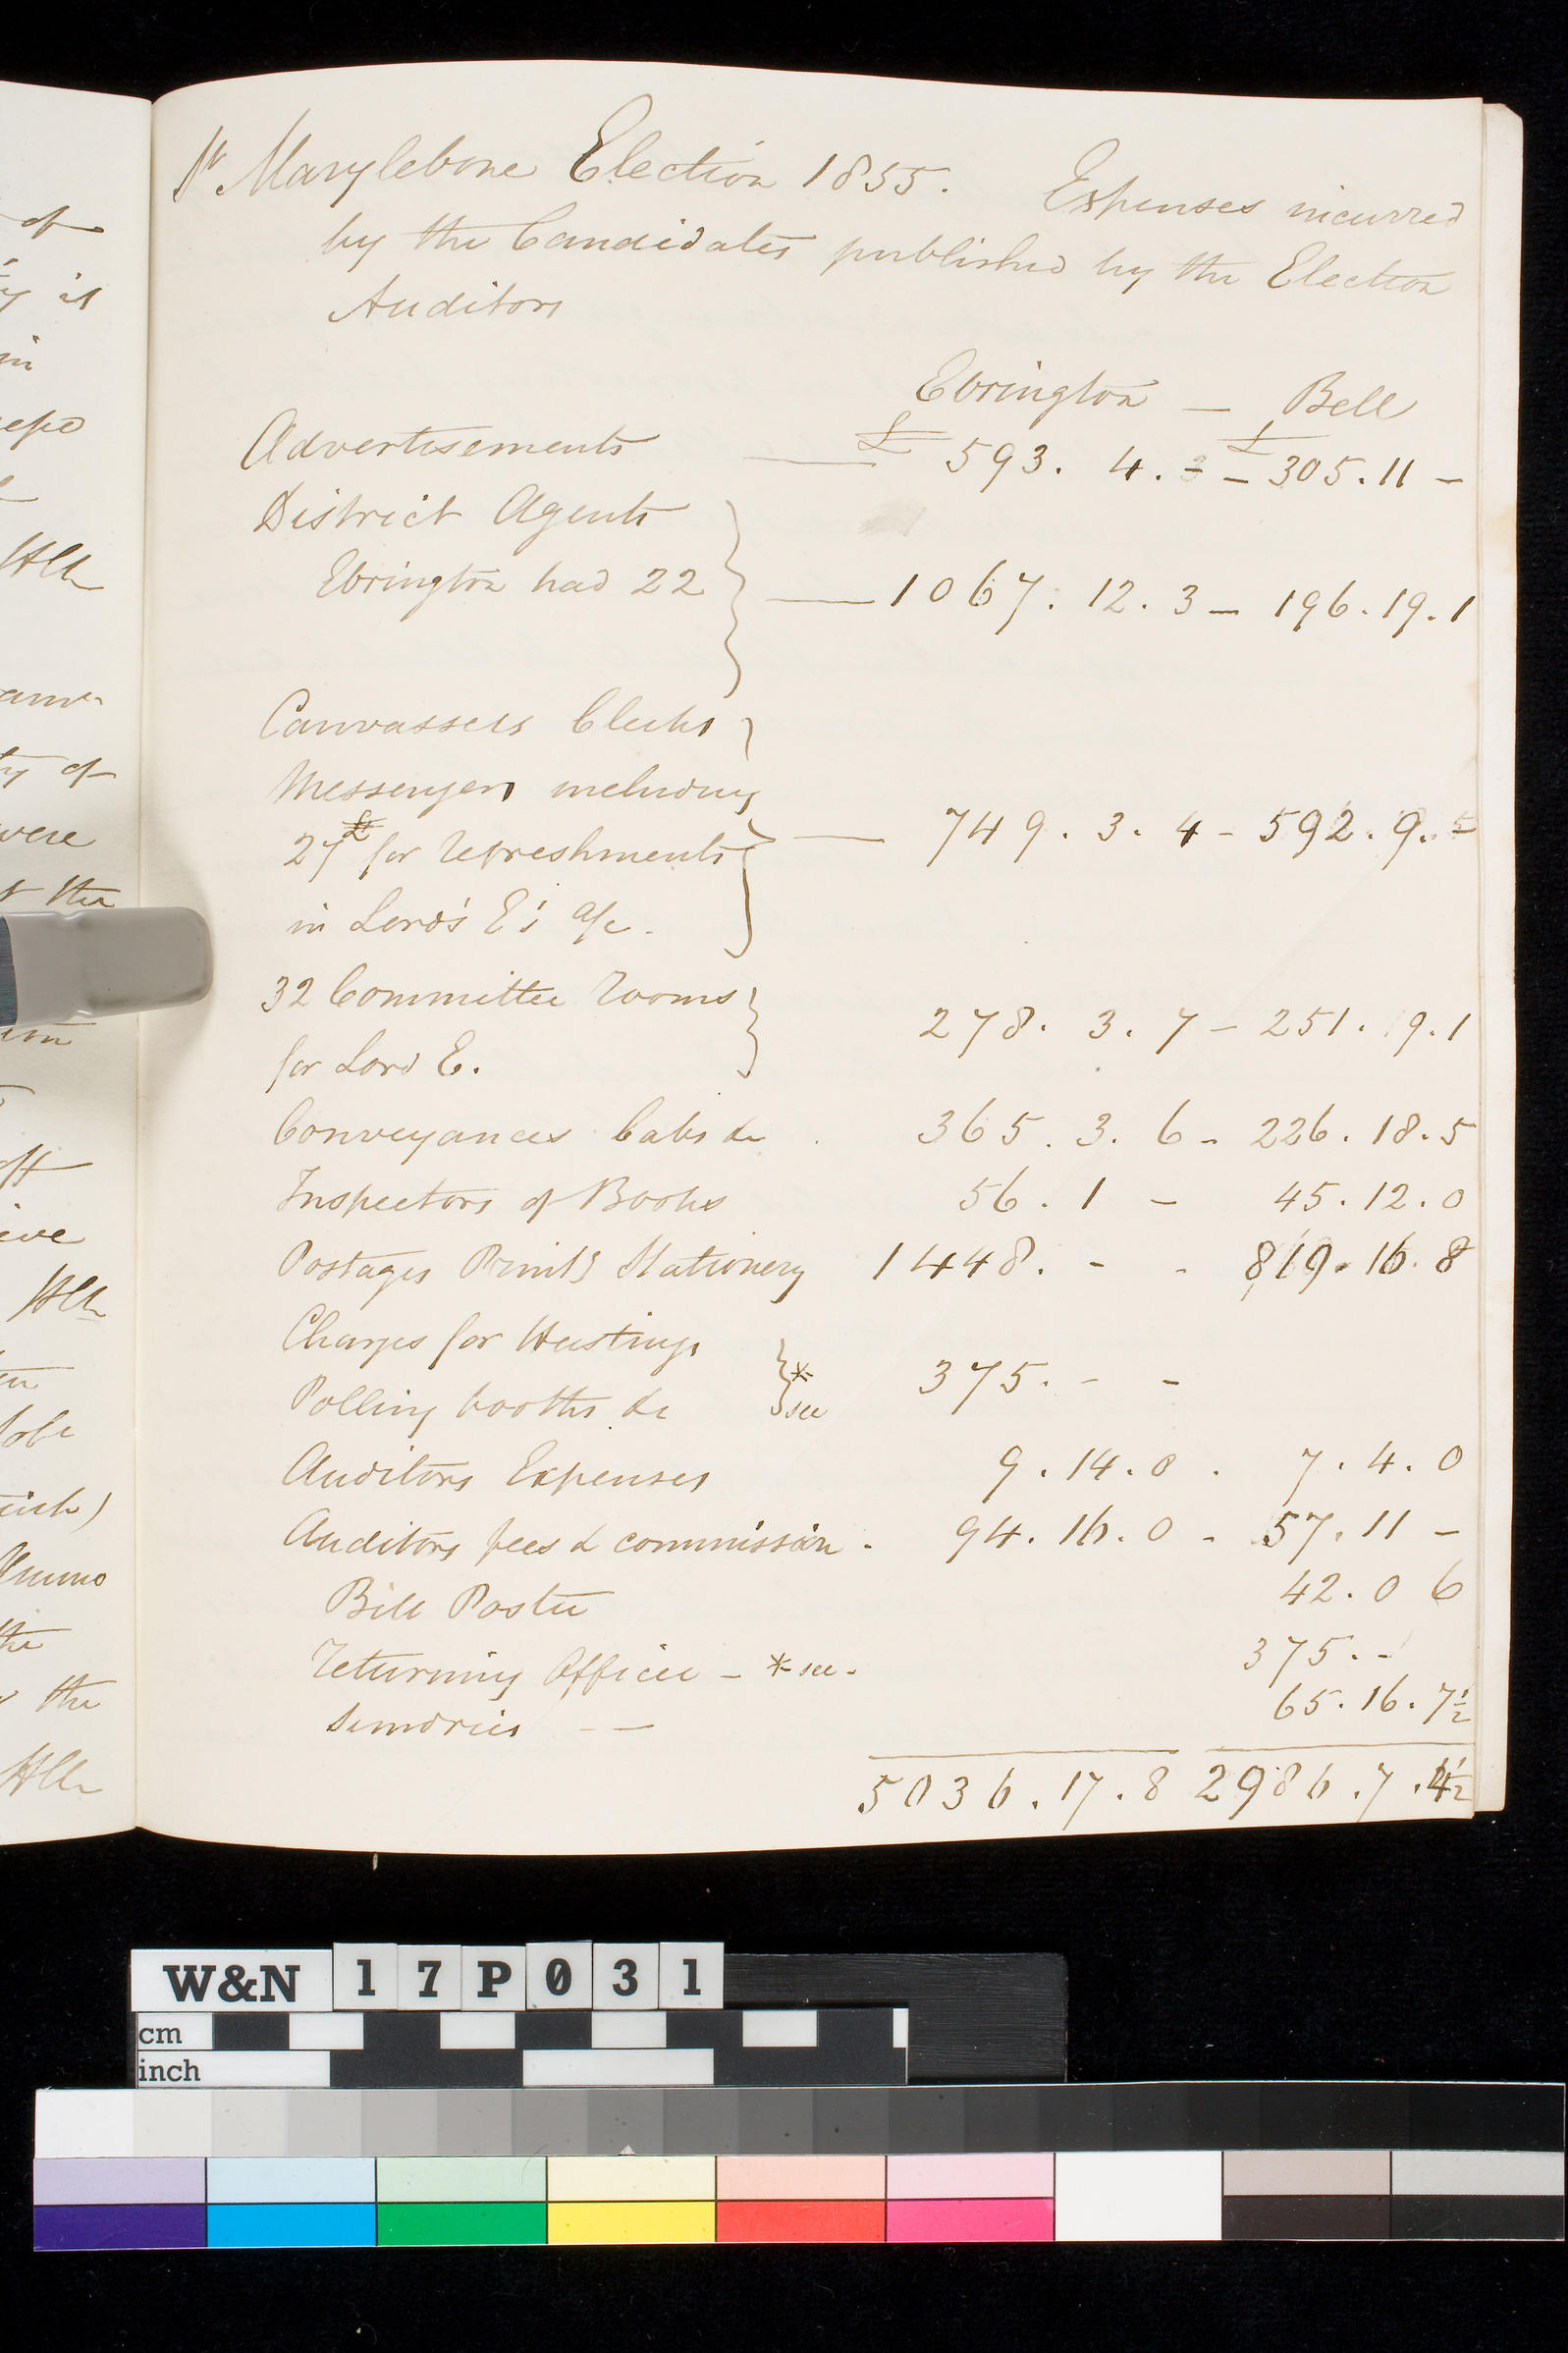 St Marylebone Election 1855. Expenses incurred
by the Candidates published by the Election
Auditors
Ebrington — Bell
Advertisements — £ 593. 4. - — £ 305. 11 -
District Agents
Ebrington had 22 — 1067. 12. 3 — 196. 19. 1
Canvassers Clerks
Messengers including
27£ for refreshments — 749. 3. 4 - 592. 9. 5
in Lord's E's a/c.
32 Committee rooms
for Lord E. 278. 3. 7 - 251. 9. 1
Conveyances Cabs &c . 365. 3. 6 - 226. 18. 5
Inspectors of Books 56. 1 - 45. 12. 0
Postages Printg Stationery 1448. - - 819. 16. 8
Charges for Hustings
Polling booths &c * see 375. - -
Auditors Expenses 9. 14. 0 . 7. 4. 0
Auditors fees & commission . 94. 16. 0 - 57. 11 -
Bill Poster 42. 0 6
Returning Officer - * see - 375. -
Sundries — — 65. 16. 7½
5036. 17. 8 2986. 7. 4½
of
it
in
of
were
the
ive
the
the
W&N 17P031
cm
inch